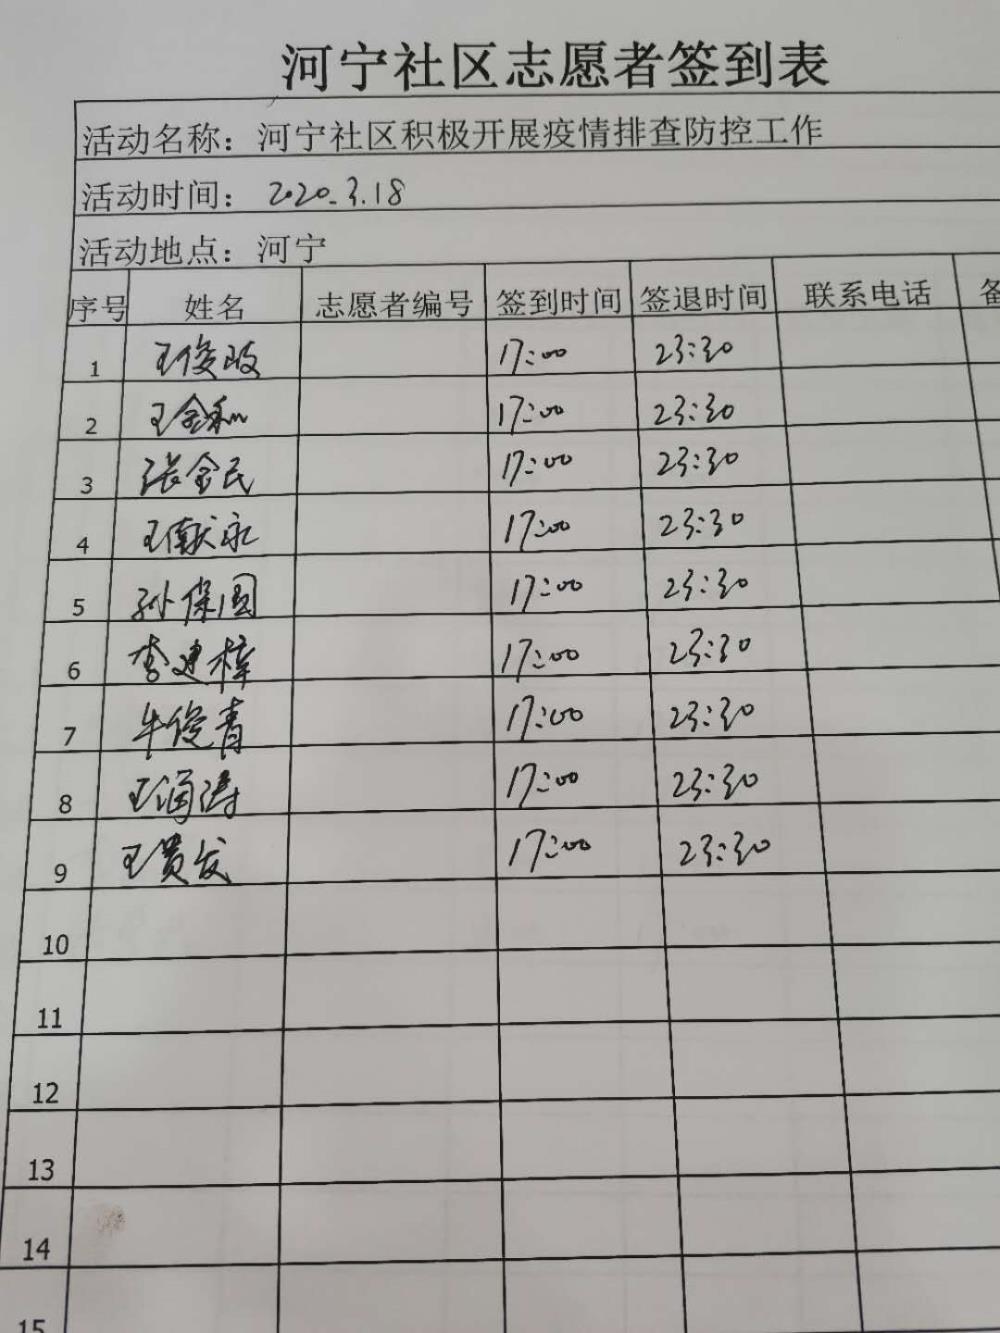 河宁社区志愿者签到表
活动名称：河宁社区积极开展疫情排查防控工作
活动时间：2020.3.18
活动地点：河宁
序号 姓名 志愿者编号 签到时间 签退时间 联系电话 备
1 王俊 17:00 23:30
2 王金和 17:00 23:30
3 张金民 17:00 23:30
4 王献永 17:00 23:30
5 孙保国 17:00 23:30
6 李建樟 17:00 23:30
7 牛俊青 17:00 23:30
8 王润涛 17:00 23:30
9 王贵发 17:00 23:30
10
11
12
13
14
15